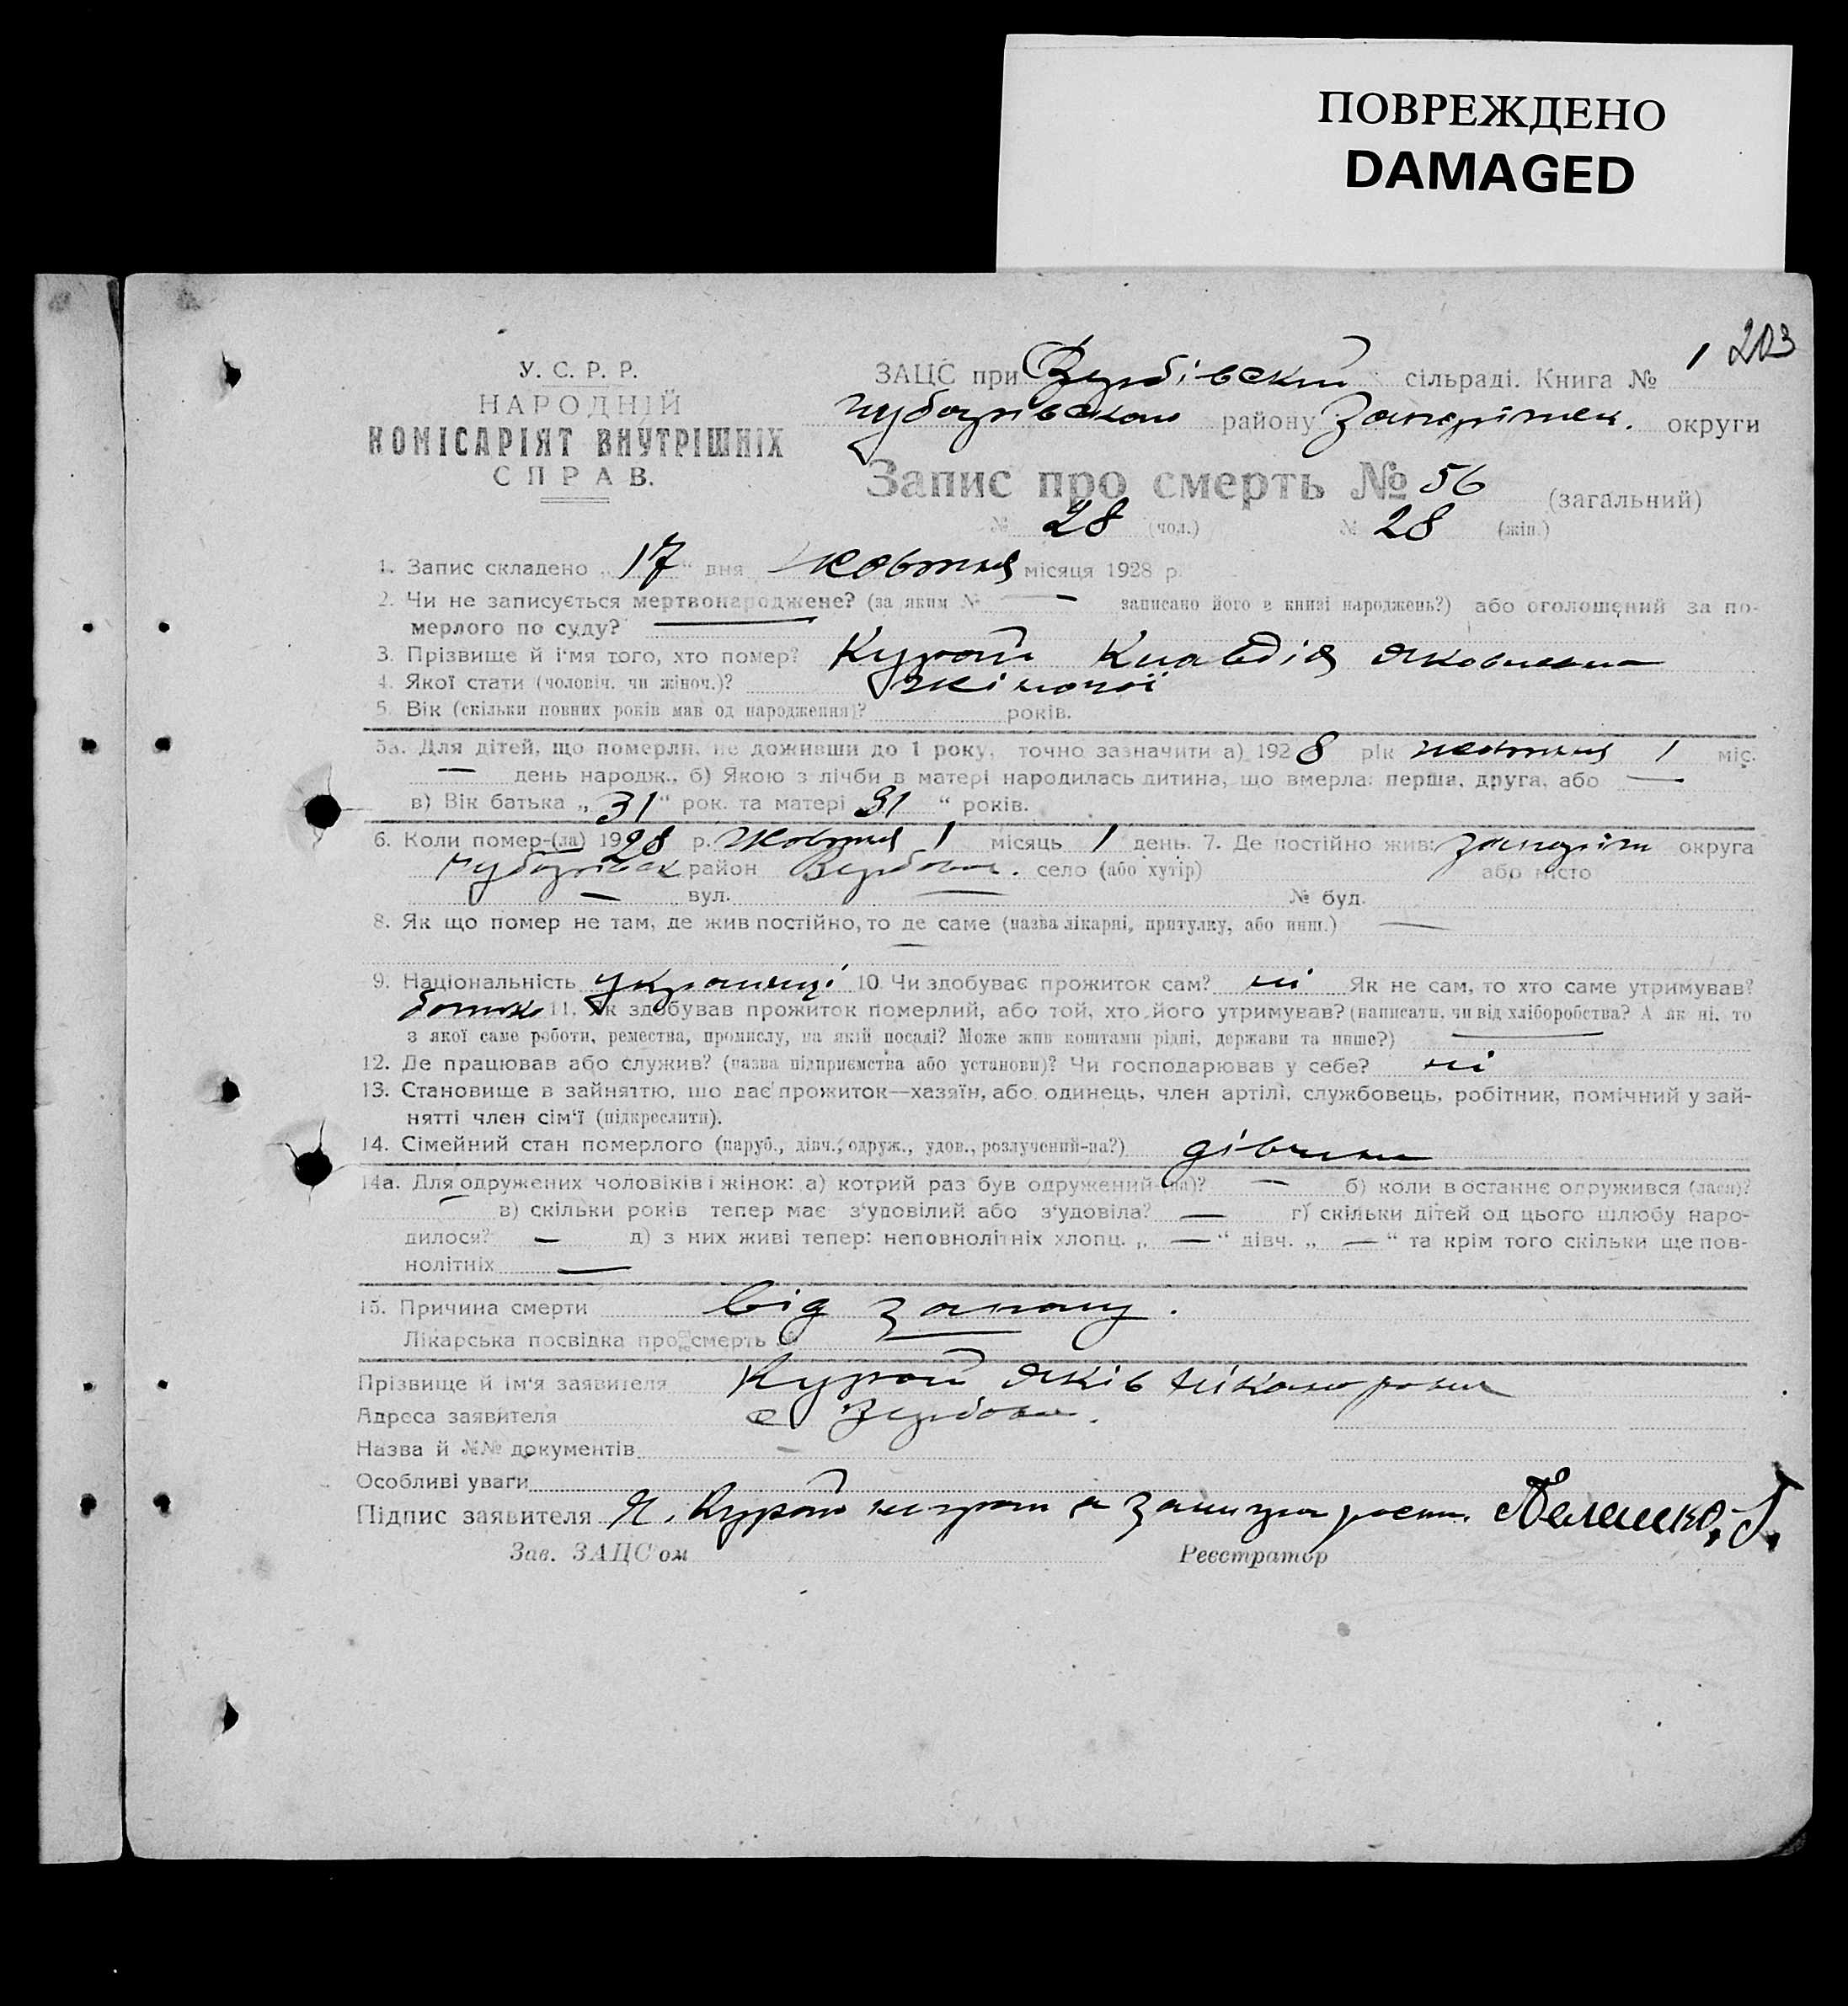 ПОВРЕЖДЕНО
DAMAGED
203
У. С. Р. Р.
НАРОДНІЙ
КОМІСАРІЯТ ВНУТРІШНІХ
СПРАВ.
ЗАЦС при Вербівский сільраді. Книга № 1
району Запоріжск. округи
Запис про смерть № 56 (загальний)
№ 28 (чол.) № 28 (жін.)
1. Запис складено „17“ дня жовтня місяця 1928 р.
2. Чи не записується мертвонароджене? (за яким № — записано його в книзі народжень?) або оголошений за по-
мерлого по суду? —
3. Прізвище й ім'я того, хто помер? Курай Клавдія Яковлевна
4. Якої стати (чоловіч. чи жіноч.)? жіночої
5. Вік (скільки повних років мав од народження)? років.
5а. Для дітей, що померли, не доживши до 1 року, точно зазначити а) 1928 рік жовтня 1 міс.
— день народж., б) Якою з лічби в матері народилась дитина, що вмерла: перша, друга, або —
в) Вік батька „31“ рок. та матері 31 “ років.
6. Коли помер-(ла) 1928 р. жовтня 1 місяць 1 день. 7. Де постійно жив: Запоріжж округа
район Вербове. село (або хутір) або місто
— вул. — № буд.
8. Як що помер не там, де жив постійно, то де саме (назва лікарні, притулку, або инш.) —
—
9. Національність українці 10. Чи здобуває прожиток сам? ні Як не сам, то хто саме утримував?
батько 11. Як здобував прожиток померлий, або той, хто його утримував? (написати, чи від хліборобства? А як ні, то
з якої саме роботи, ремества, промислу, на якій посаді? Може жив коштами рідні, держави та инше?) —
12. Де працював або служив? (назва підприємства або установи)? Чи господарював у себе? ні
13. Становище в зайняттю, що дає прожиток—хазяїн, або одинець, член артілі, службовець, робітник, помічний у зай-
нятті член сім'ї (підкреслити).
14. Сімейний стан померлого (паруб., дівч., одруж., удов., розлучений-на?) дівчина
14а. Для одружених чоловіків і жінок: а) котрий раз був одружений (на)? — б) коли востаннє одружився (лася)?
— в) скільки років тепер має з'удовілий або з'удовіла? — г) скільки дітей од цього шлюбу наро-
дилося? — д) з них живі тепер: неповнолітніх хлопц. „ — “ дівч. „ — “ та крім того скільки ще пов-
нолітніх —
15. Причина смерти від запалу.
Лікарська посвідка про смерть № —
Прізвище й ім'я заявителя Курай Яків Ніканорович
Адреса заявителя с Вербове.
Назва й №№ документів —
Особливі уваги
Підпис заявителя Я. Курай
Зав. ЗАЦС'ом Реєстратор